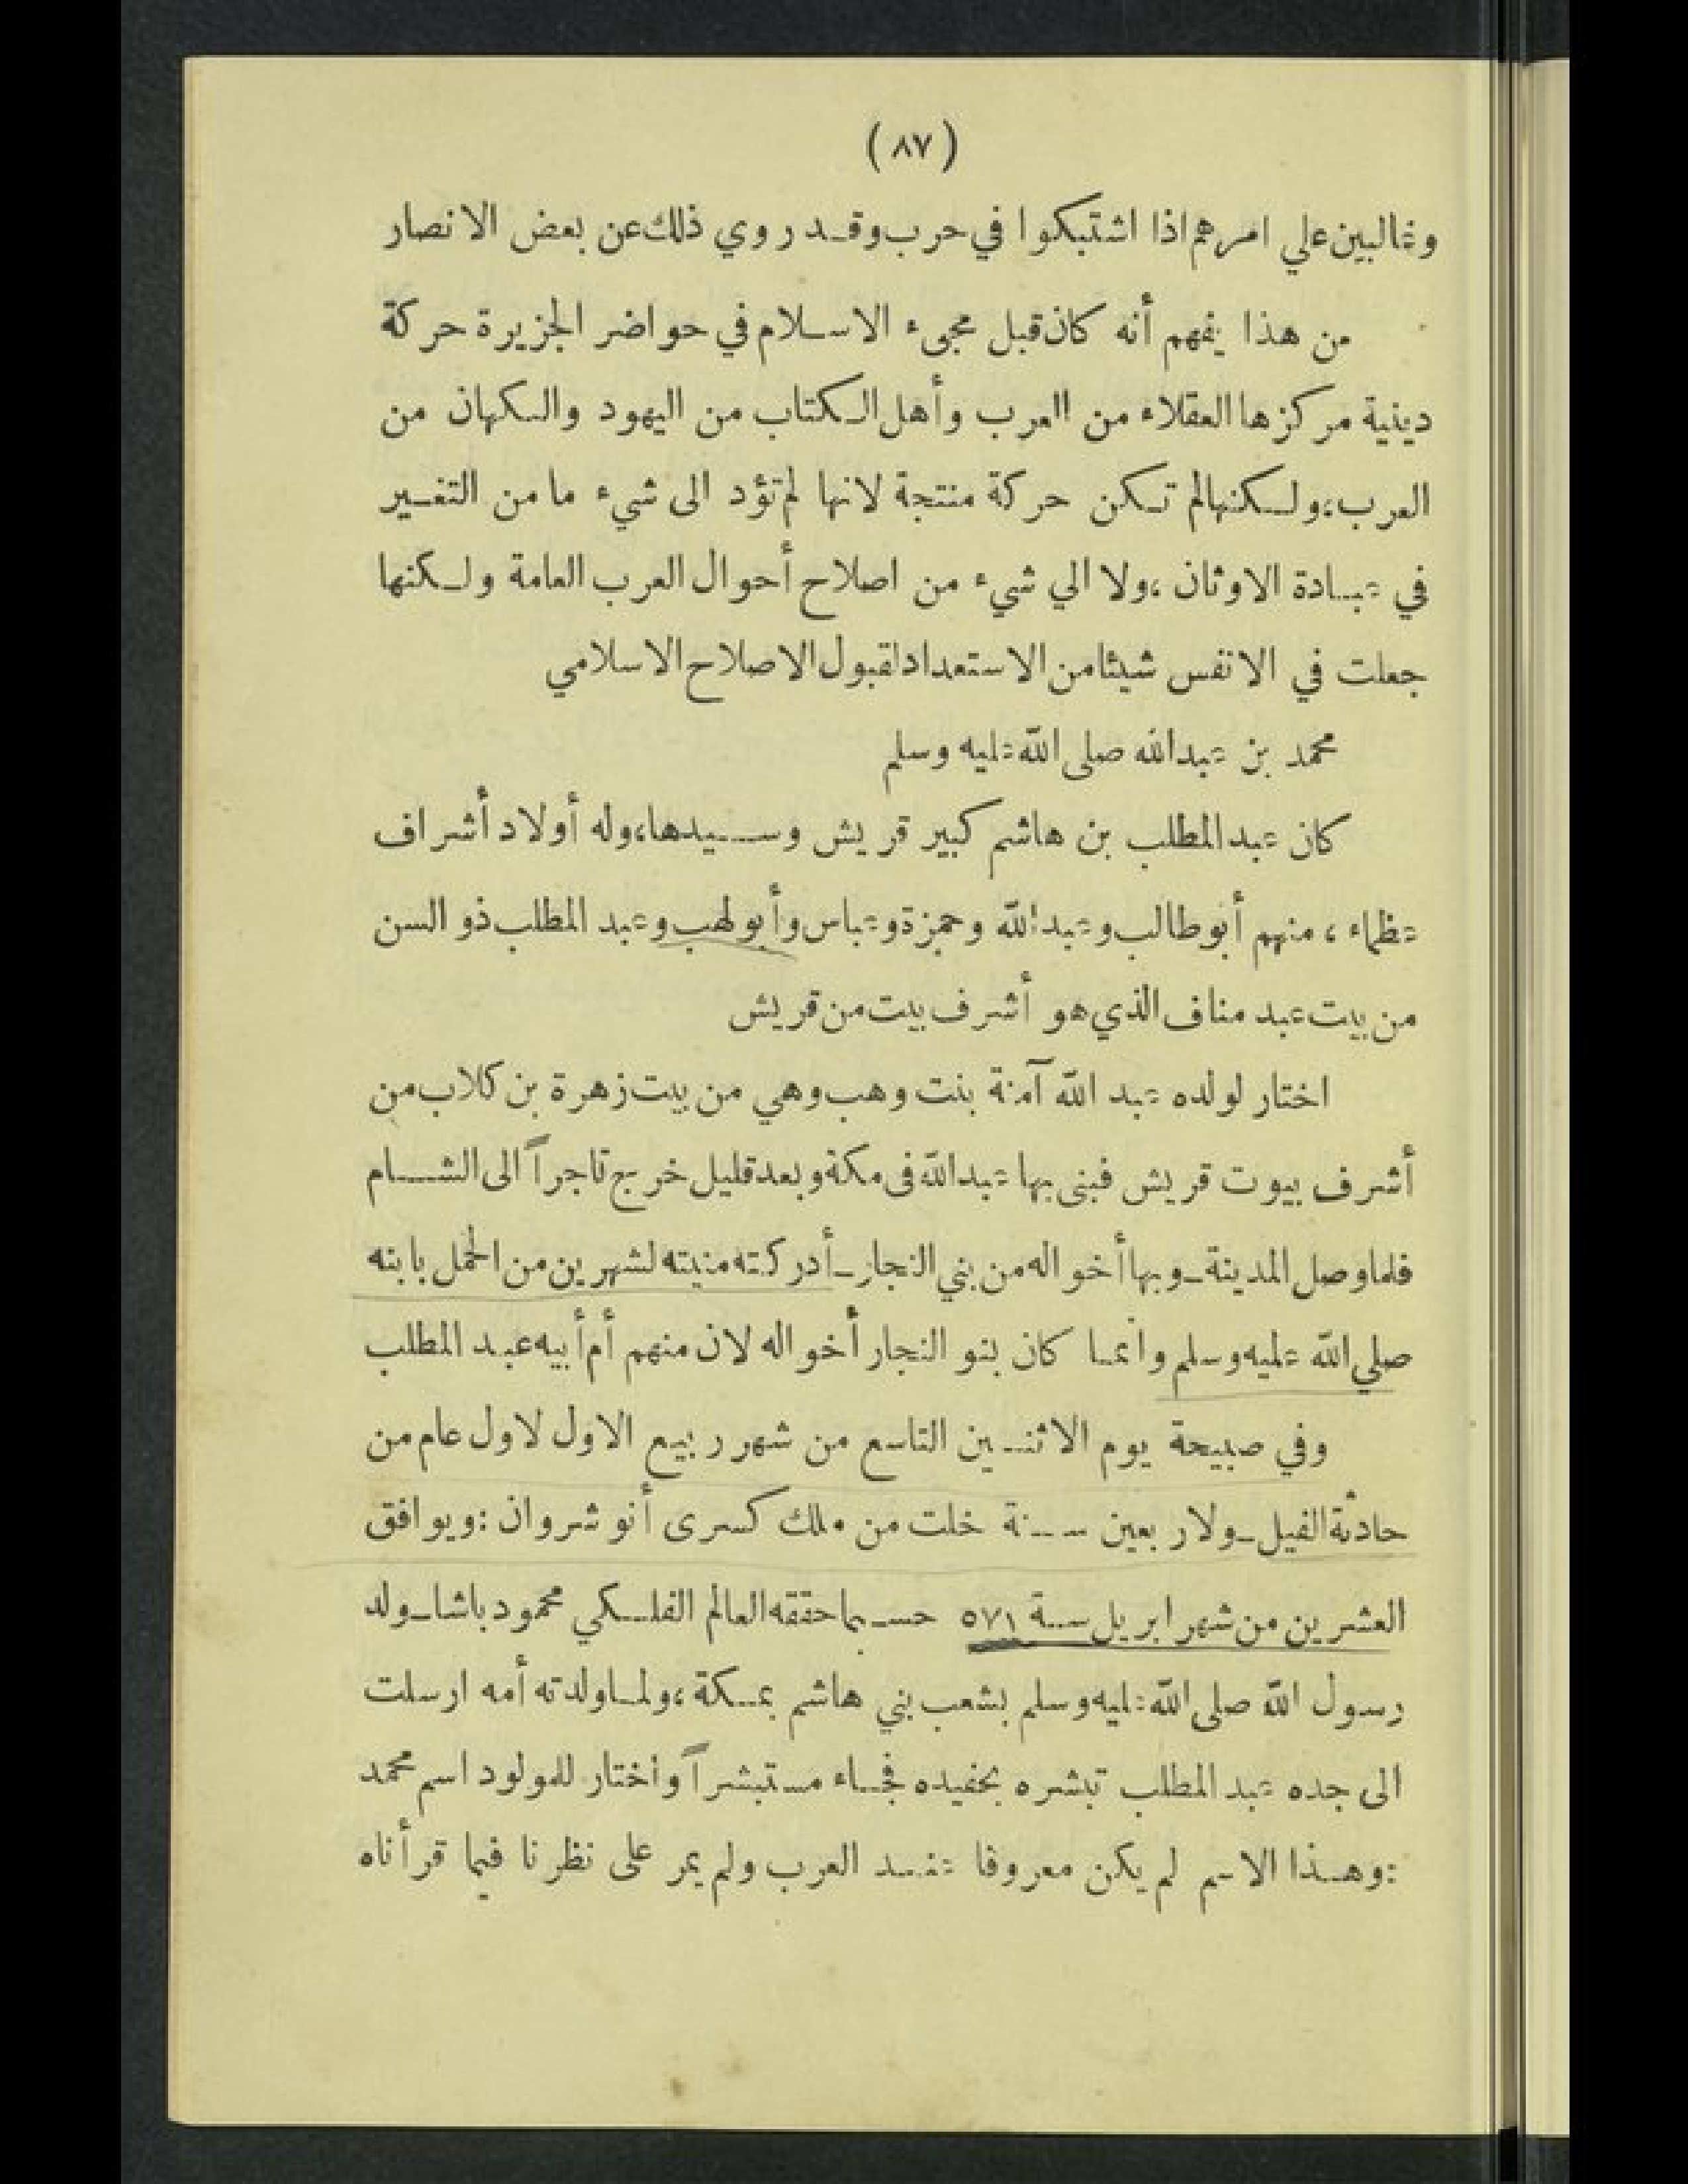 ( ٨٧ )
وغالبين علي امرهم اذا اشتبكوا في حرب وقد روي ذلك عن بعض الانصار
من هذا يفهم أنه كان قبل مجىء الاسلام في حواضر الجزيرة حركة
دينية مركزها العقلاء من العرب وأهل الكتاب من اليهود والكهان من
العرب، ولكنها لم تكن حركة منتجة لانها لم تؤد الى شيء ما من التغير
في عبادة الاوثان، ولا الي شيء من اصلاح أحوال العرب العامة ولكنها
جعلت في الانفس شيئا من الاستعداد لقبول الاصلاح الاسلامي
محمد بن عبدالله صلى الله عليه وسلم
كان عبد المطلب بن هاشم كبير قريش وسيدها، وله أولاد أشراف
عظماء، منهم أبو طالب وعبد الله وحمزة وعباس وأبو لهب وعبد المطلب ذو السن
من بيت عبد مناف الذي هو أشرف بيت من قريش
اختار لولده عبد الله آمنة بنت وهب وهي من بيت زهرة بن كلاب من
أشرف بيوت قريش فبنى بها عبدالله فى مكة وبعد قليل خرج تاجراً الى الشام
فلما وصل المدينة ـ وبها أخواله من بني النجار ـ أدركته منيته لشهرين من الحمل بابنه
صلي الله عليه وسلم وانما كان بنو النجار أخواله لان منهم أم أبيه عبد المطلب
وفي صبيحة يوم الاثنين التاسع من شهر ربيع الاول لاول عام من
حادثة الفيل ـ ولاربعين سنة خلت من ملك كسرى أنو شروان : ويوافق
العشرين من شهر ابريل سنة ٥٧١ حسبما حققه العالم الفلكي محمود باشا ـ ولد
رسول الله صلى الله عليه وسلم بشعب بني هاشم بمكة، ولما ولدته أمه ارسلت
الى جده عبد المطلب تبشره بحفيده فجاء مستبشراً واختار للمولود اسم محمد
: وهذا الاسم لم يكن معروفا عند العرب ولم يمر على نظرنا فيما قرأناه